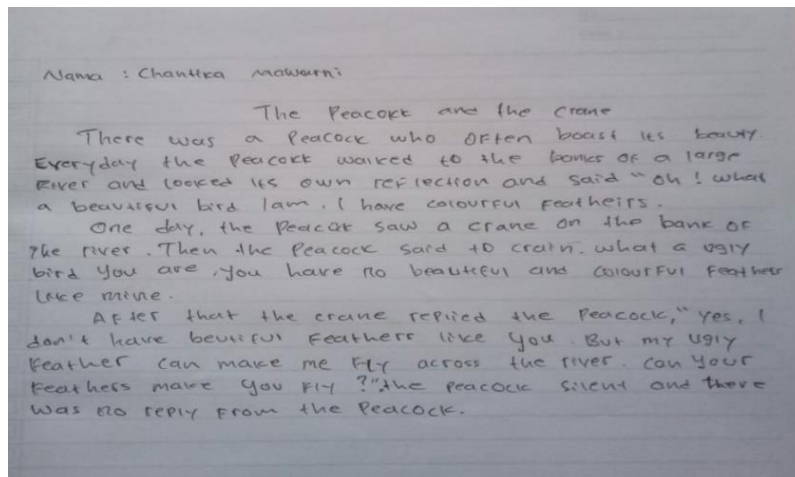 Nama : Chantika Mawarni
The Peacock and the Crane
There was a Peacock who often boast its beauty.
Everyday the Peacock walked to the banks of a large
River and looked its own reflection and said "oh! what
a beautiful bird I am. I have colourful featheirs.
One day, the Peacok saw a crane on the bank of
The river. Then the Peacock said to crain. what a ugly
bird you are, you have no beautiful and colourful feathers
like mine.
After that the crane replied the Peacock, "yes, I
don't have beutiful Feathers like you. But my ugly
Feather can make me Fly across the river. can your
Feathers make you Fly ?" the peacock silent and there
was no reply from the Peacock.